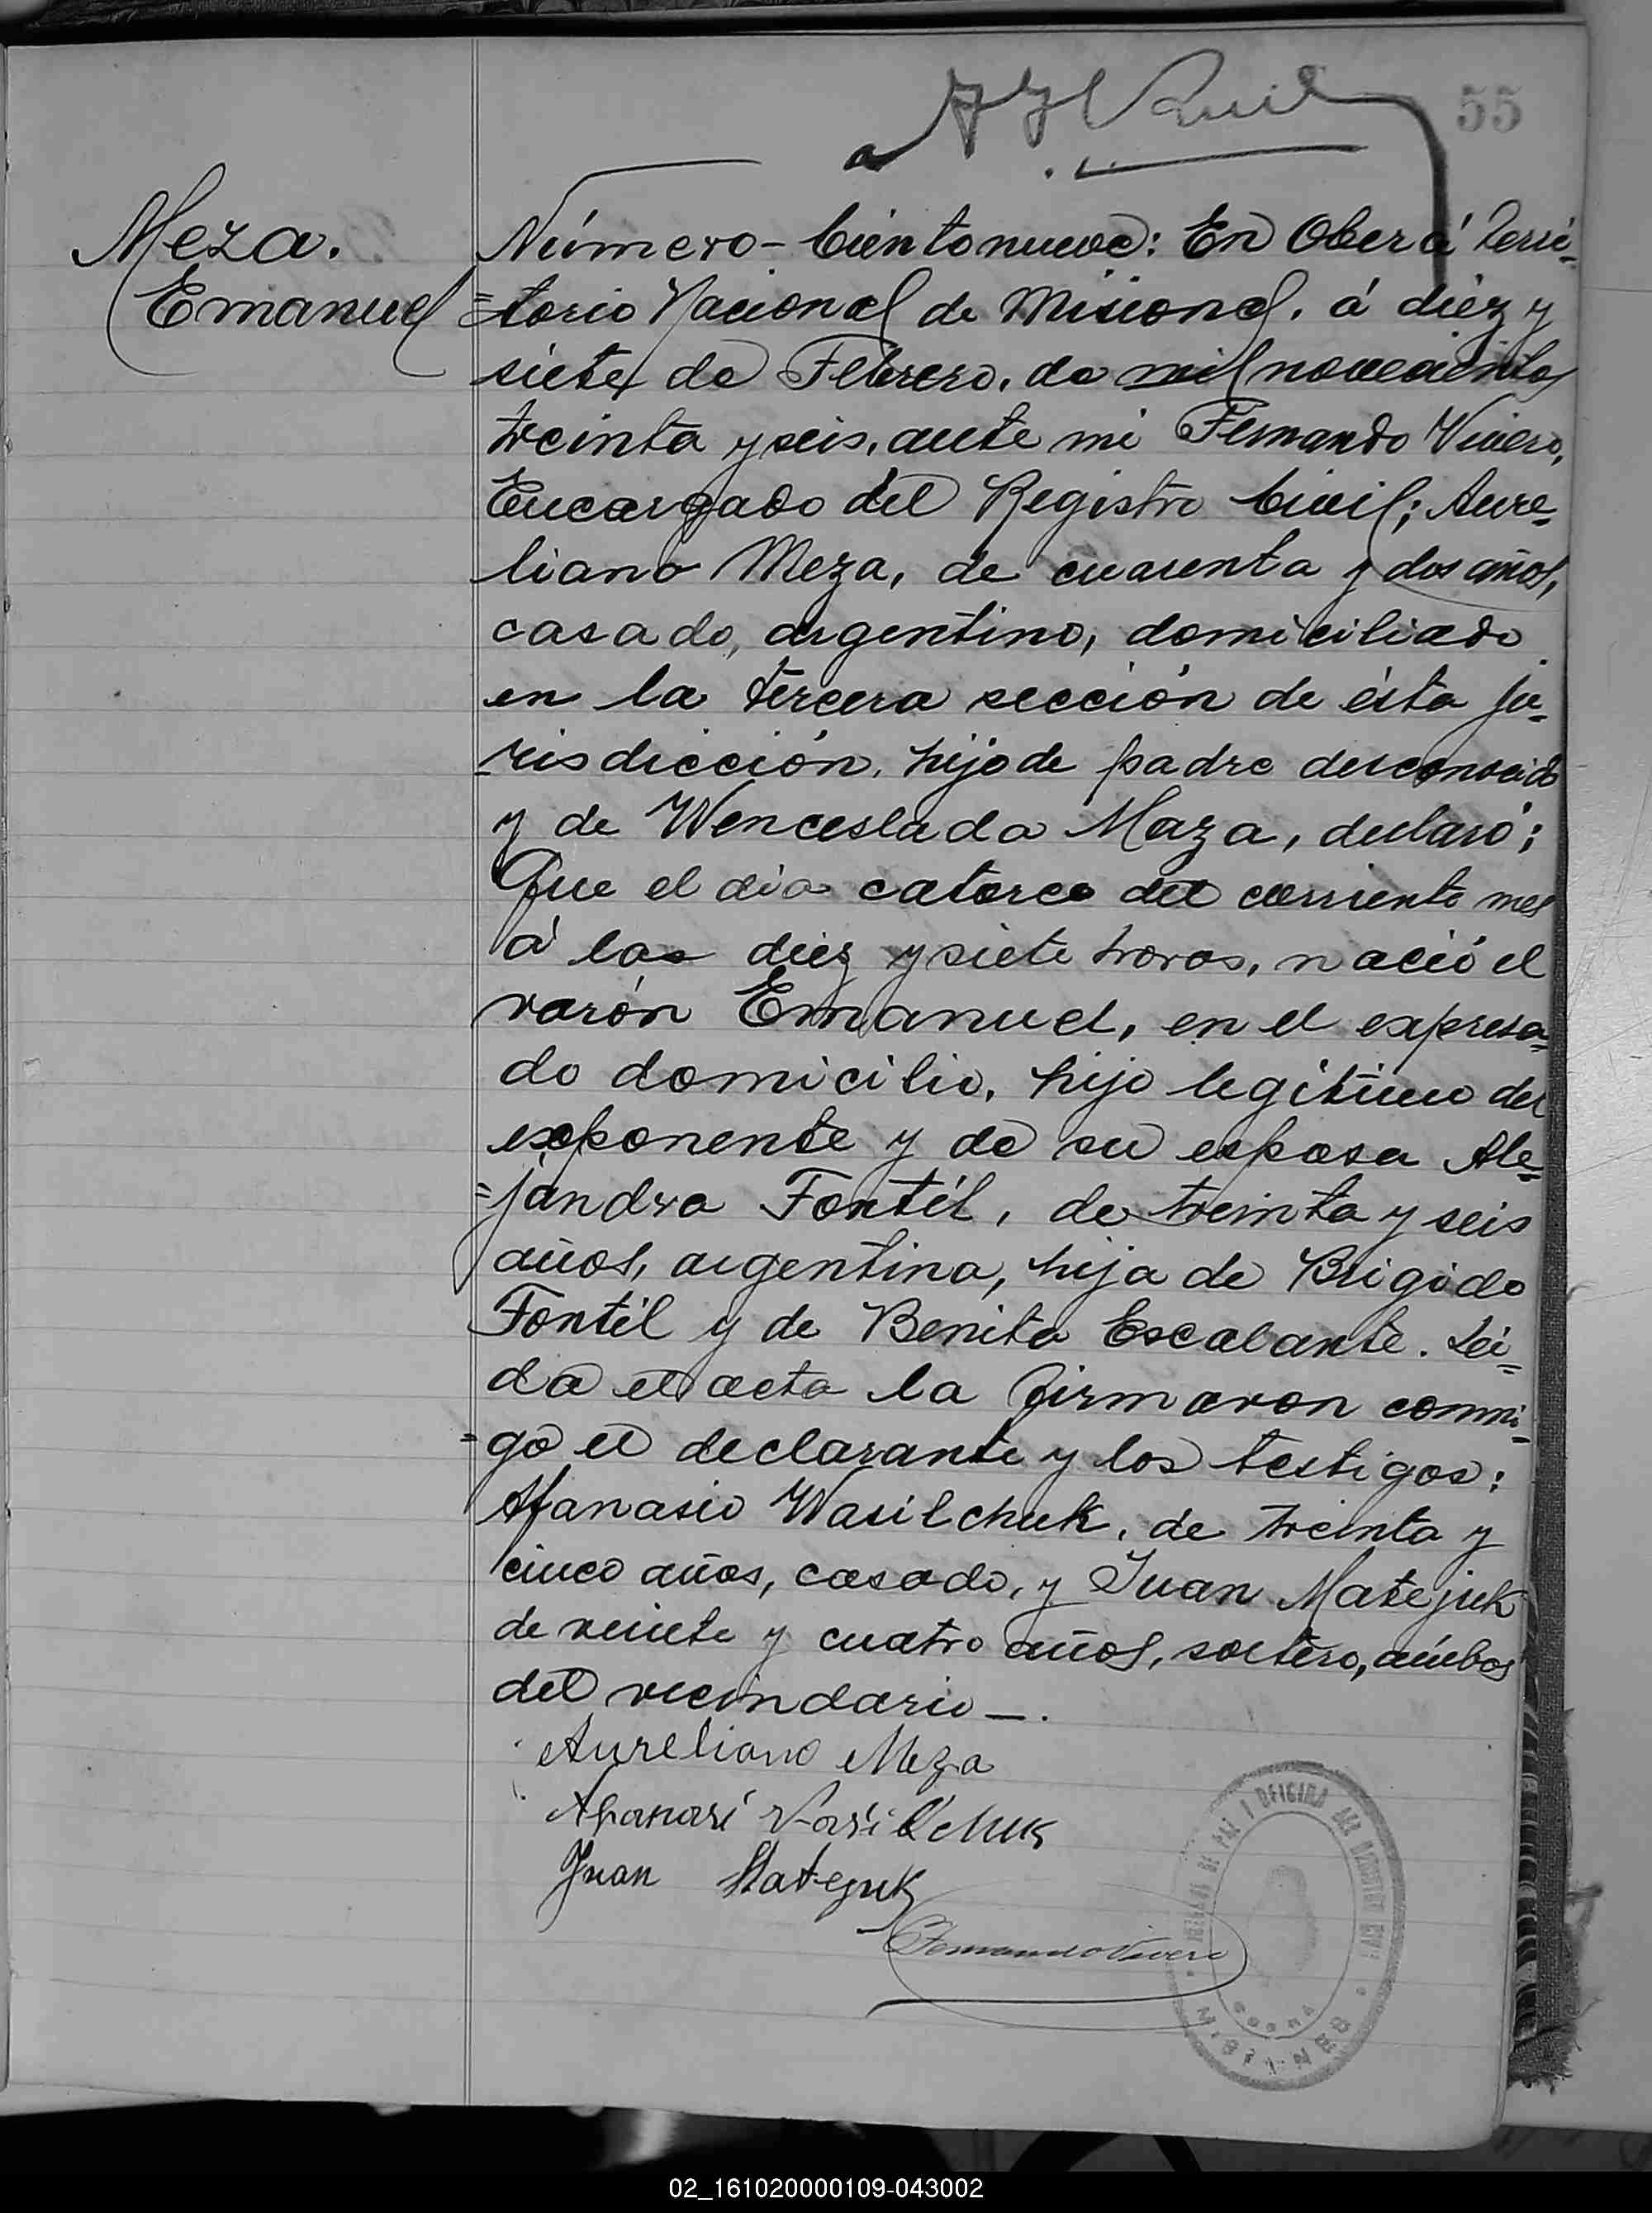 55
Meza.
Emanuel
Número - Ciento nueve: En Oberá Terri-
=torio Nacional de Misiones, á diez y
siete de Febrero, de mil novecientos
treinta y seis, ante mi Fernando Vivero,
Encargado del Registro Civil; Aure-
liano Meza, de cuarenta y dos años,
casado, argentino, domiciliado
en la tercera sección de ésta ju-
-risdicción, hijo de padre desconocido
y de Wenceslada Maza, declaró;
Que el dia catorce del corriente mes
á las diez y siete horas, nació el
varón Emanuel, en el expresa=
do domicilio, hijo legitimo del
exponente y de su esposa Ale=
=jandra Fontél, de treinta y seis
años, argentina, hija de Brigido
Fontél y de Benita Escalante. Lei=
da el acta la firmaron conmi=
=go el declarante y los testigos:
Afanasio Wasilchuk, de treinta y
cinco años, casado, y Juan Matejuk
de veinte y cuatro años, soltero, ámbos
del vecindario -.
Aureliano Meza
Juan Matejuk
Fernando Vivero
OFICINA DEL REGISTRO CIVIL
MISIONES
02_161020000109-043002